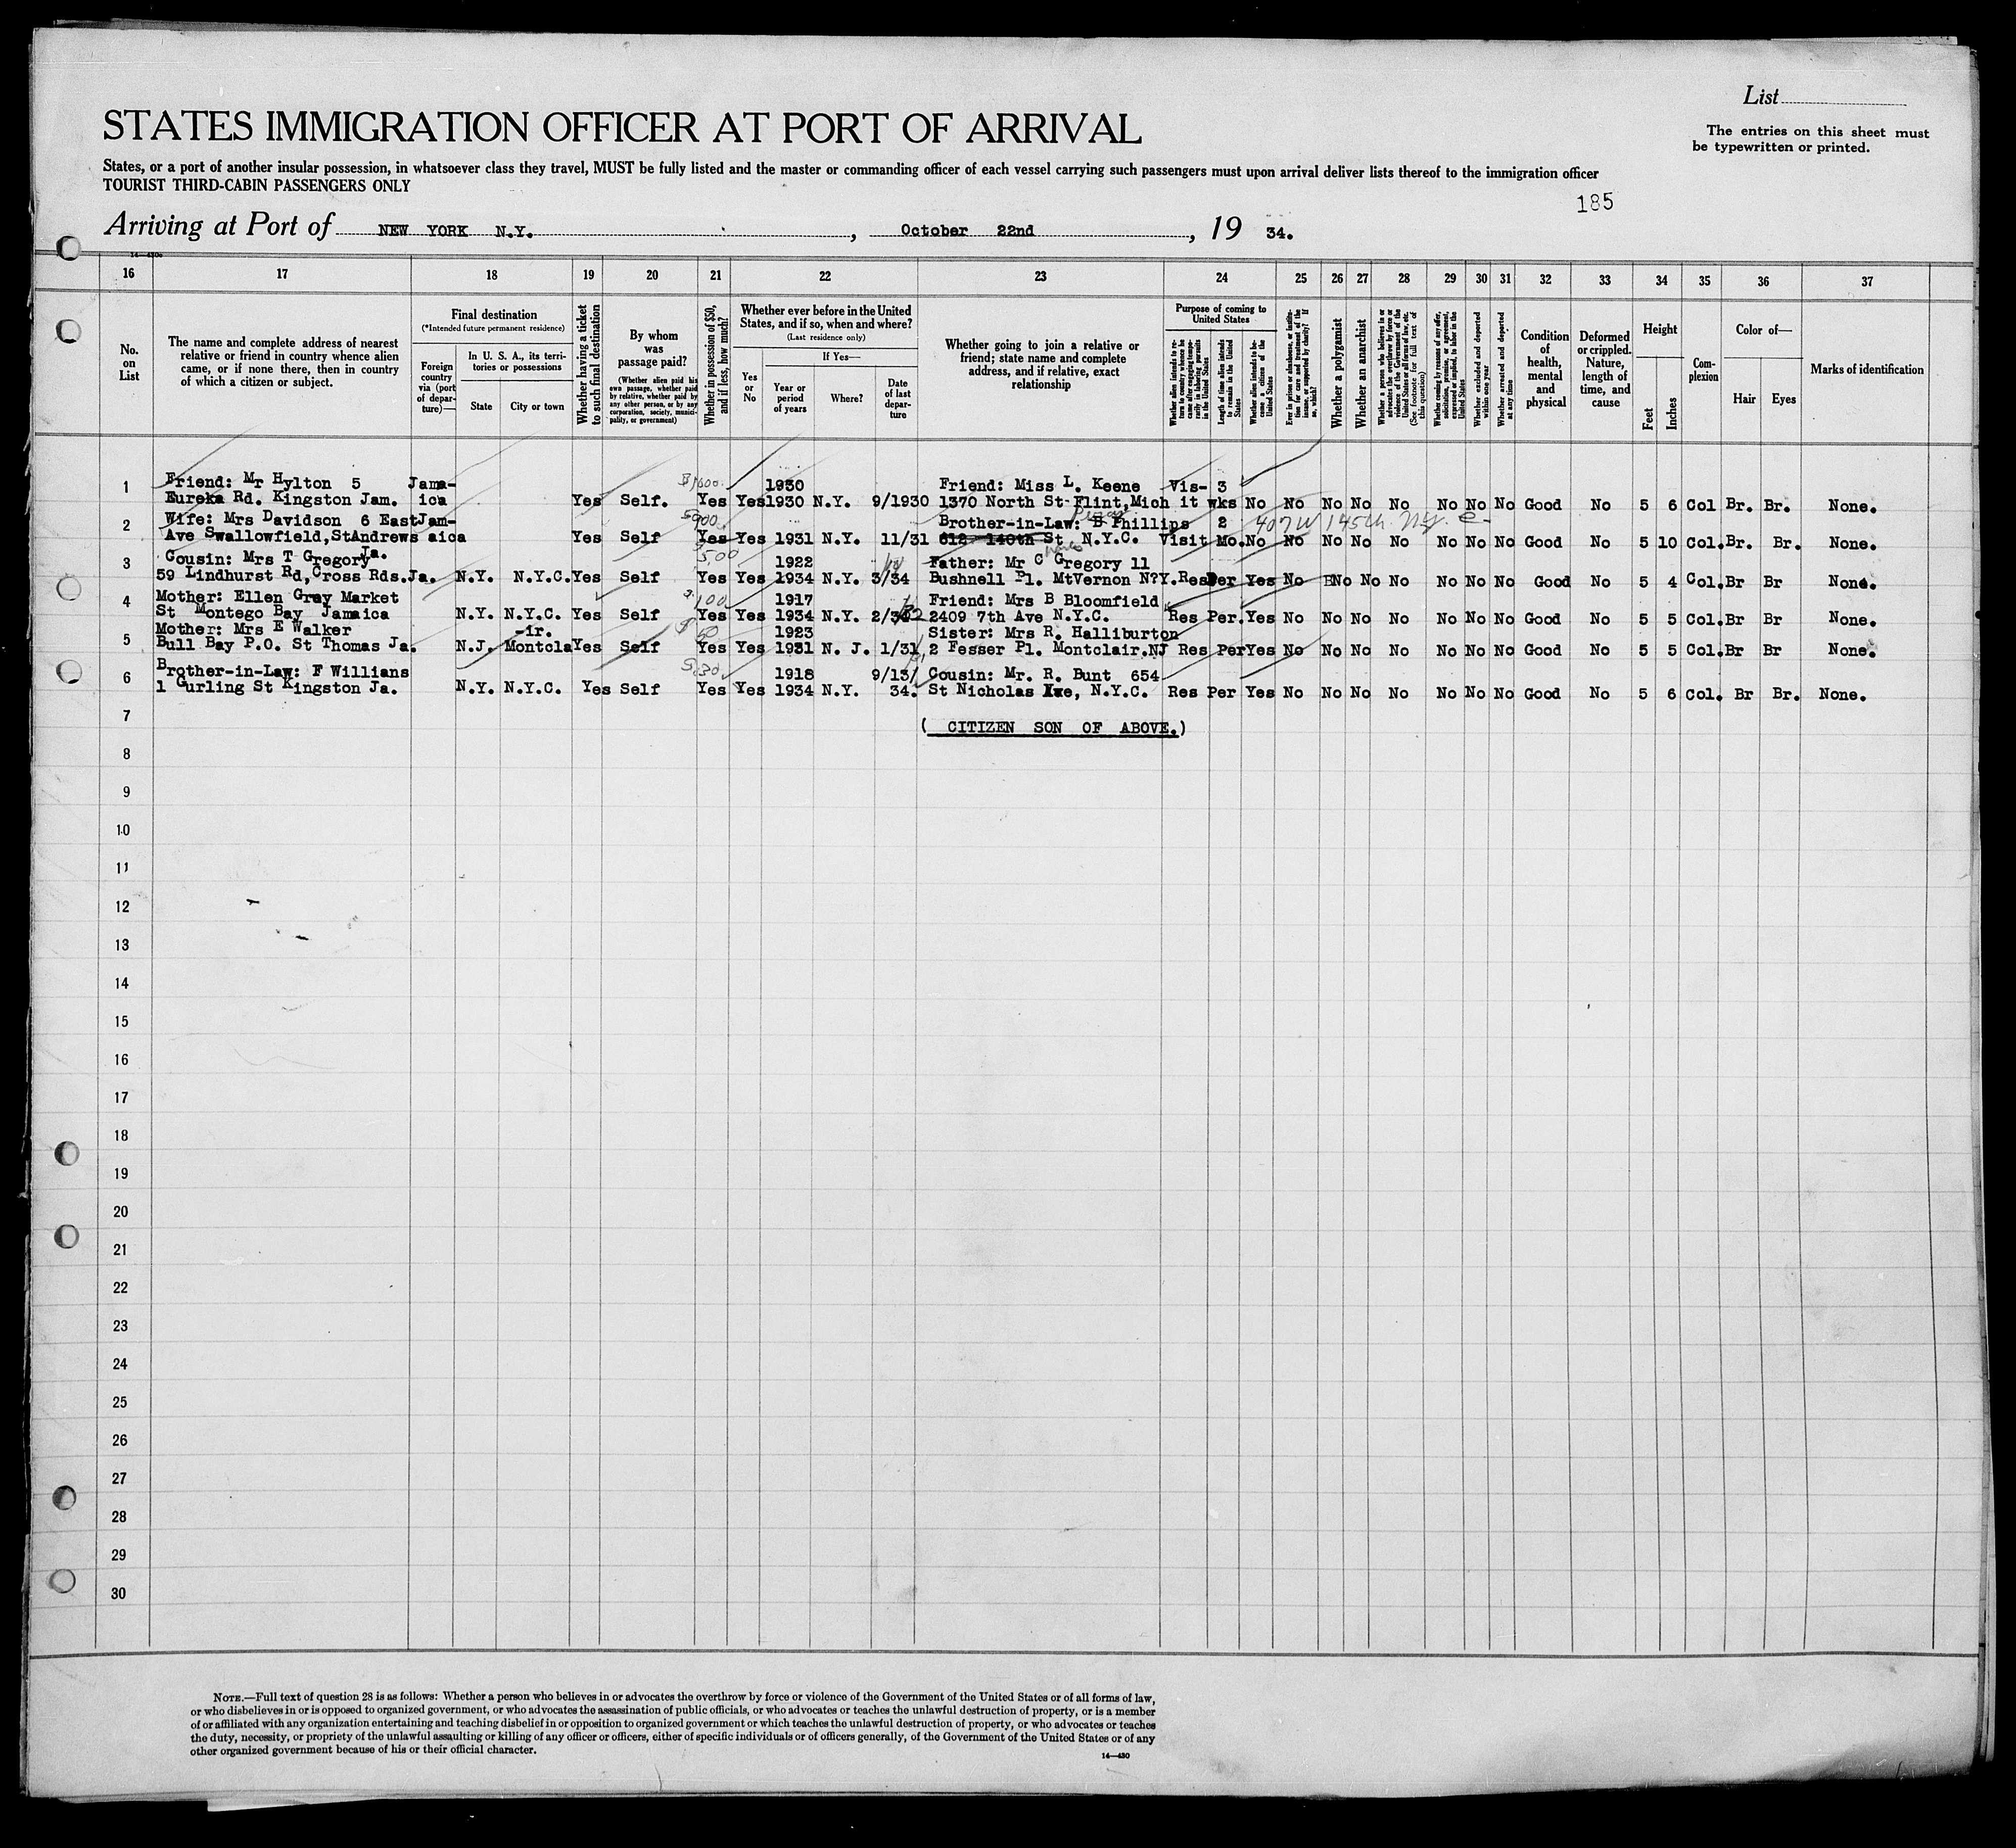 List
STATES IMMIGRATION OFFICER AT PORT OF ARRIVAL
The entries on this sheet must
be typewritten or printed.
States, or a port of another insular possession, in whatsoever class they travel, MUST be fully listed and the master or commanding officer of each vessel carrying such passengers must upon arrival deliver lists thereof to the immigration officer
TOURIST THIRD-CABIN PASSENGERS ONLY
185
Arriving at Port of NEW YORK N.Y. , October 22nd , 19 34.
16 17 18 19 20 21 22 23 24 25 26 27 28 29 30 31 32 33 34 35 36 37
No. on List
The name and complete address of nearest relative or friend in country whence alien came, or if none there, then in country of which a citizen or subject.
Final destination
(*Intended future permanent residence)
Foreign country via (port of departure)—
In U. S. A., its territories or possessions
State
City or town
Whether having a ticket to such final destination
By whom was passage paid?
(Whether alien paid his own passage, whether paid by relative, whether paid by any other person, or by any corporation, society, municipality, or government)
Whether in possession of $50, and if less, how much?
Whether ever before in the United States, and if so, when and where?
(Last residence only)
Yes or No
If Yes—
Year or period of years
Where?
Date of last departure
Whether going to join a relative or friend; state name and complete address, and if relative, exact relationship
Purpose of coming to United States
Length of time alien intends to remain in the United States
Whether alien intends to become a citizen of the United States
Whether a polygamist
Whether an anarchist
Whether excluded and deported within one year
Whether arrested and deported at any time
Condition of health, mental and physical
Deformed or crippled. Nature, length of time, and cause
Height
Feet
Inches
Complexion
Color of—
Hair
Eyes
Marks of identification
1 Friend: Mr Hylton 5 Jama- 1930 Friend: Miss L. Keene Vis- 3
Eureka Rd. Kingston Jam. ica Yes Self. Yes Yes 1930 N.Y. 9/1930 1370 North St Flint, Mich it wks No No No No No No No No Good No 5 6 Col Br. Br. None.
2 Wife: Mrs Davidson 6 East Jam- 900 Brother-in-Law: B Phillips 2 407 W 145th N.Y.
Ave Swallowfield, StAndrews aica Yes Self Yes Yes 1931 N.Y. 11/31 612 140th St N.Y.C. Visit Mo. No No No No No No No No Good No 5 10 Col. Br. Br. None.
Ja.
3 Cousin: Mrs T Gregory 500 1922 Father: Mr C Gregory 11
59 Lindhurst Rd, Cross Rds. Ja. N.Y. N.Y.C. Yes Self Yes Yes 1934 N.Y. 3/34 Bushnell Pl. MtVernon N?Y. Res Per Yes No No No No No No No Good No 5 4 Col. Br Br None.
4 Mother: Ellen Gray Market 100 1917 Friend: Mrs B Bloomfield
St Montego Bay Jamaica N.Y. N.Y.C. Yes Self Yes Yes 1934 N.Y. 2409 7th Ave N.Y.C. Res Per. Yes No No No No No No No Good No 5 5 Col. Br Br None.
5 Mother: Mrs E Walker -ir. 50 1923 Sister: Mrs R. Halliburton
Bull Bay P.O. St Thomas Ja. N.J. Montcla Yes Self Yes Yes 1931 N. J. 1/31 2 Fesser Pl. Montclair.NJ Res Per Yes No No No No No No No Good No 5 5 Col. Br Br None.
6 Brother-in-Law: F Willians 1918 9/13/ Cousin: Mr. R. Bunt 654
1 Gurling St Kingston Ja. N.Y. N.Y.C. Yes Self Yes Yes 1934 N.Y. 34. St Nicholas Ave, N.Y.C. Res Per Yes No No No No No No No Good No 5 6 Col. Br Br. None.
7 ( CITIZEN SON OF ABOVE.)
8
9
10
11
12
13
14
15
16
17
18
19
20
21
22
23
24
25
26
27
28
29
30
NOTE.—Full text of question 28 is as follows: Whether a person who believes in or advocates the overthrow by force or violence of the Government of the United States or of all forms of law,
or who disbelieves in or is opposed to organized government, or who advocates the assassination of public officials, or who advocates or teaches the unlawful destruction of property, or is a member
of or affiliated with any organization entertaining and teaching disbelief in or opposition to organized government or which teaches the unlawful destruction of property, or who advocates or teaches
the duty, necessity, or propriety of the unlawful assaulting or killing of any officer or officers, either of specific individuals or of officers generally, of the Government of the United States or of any
other organized government because of his or their official character.
14—430